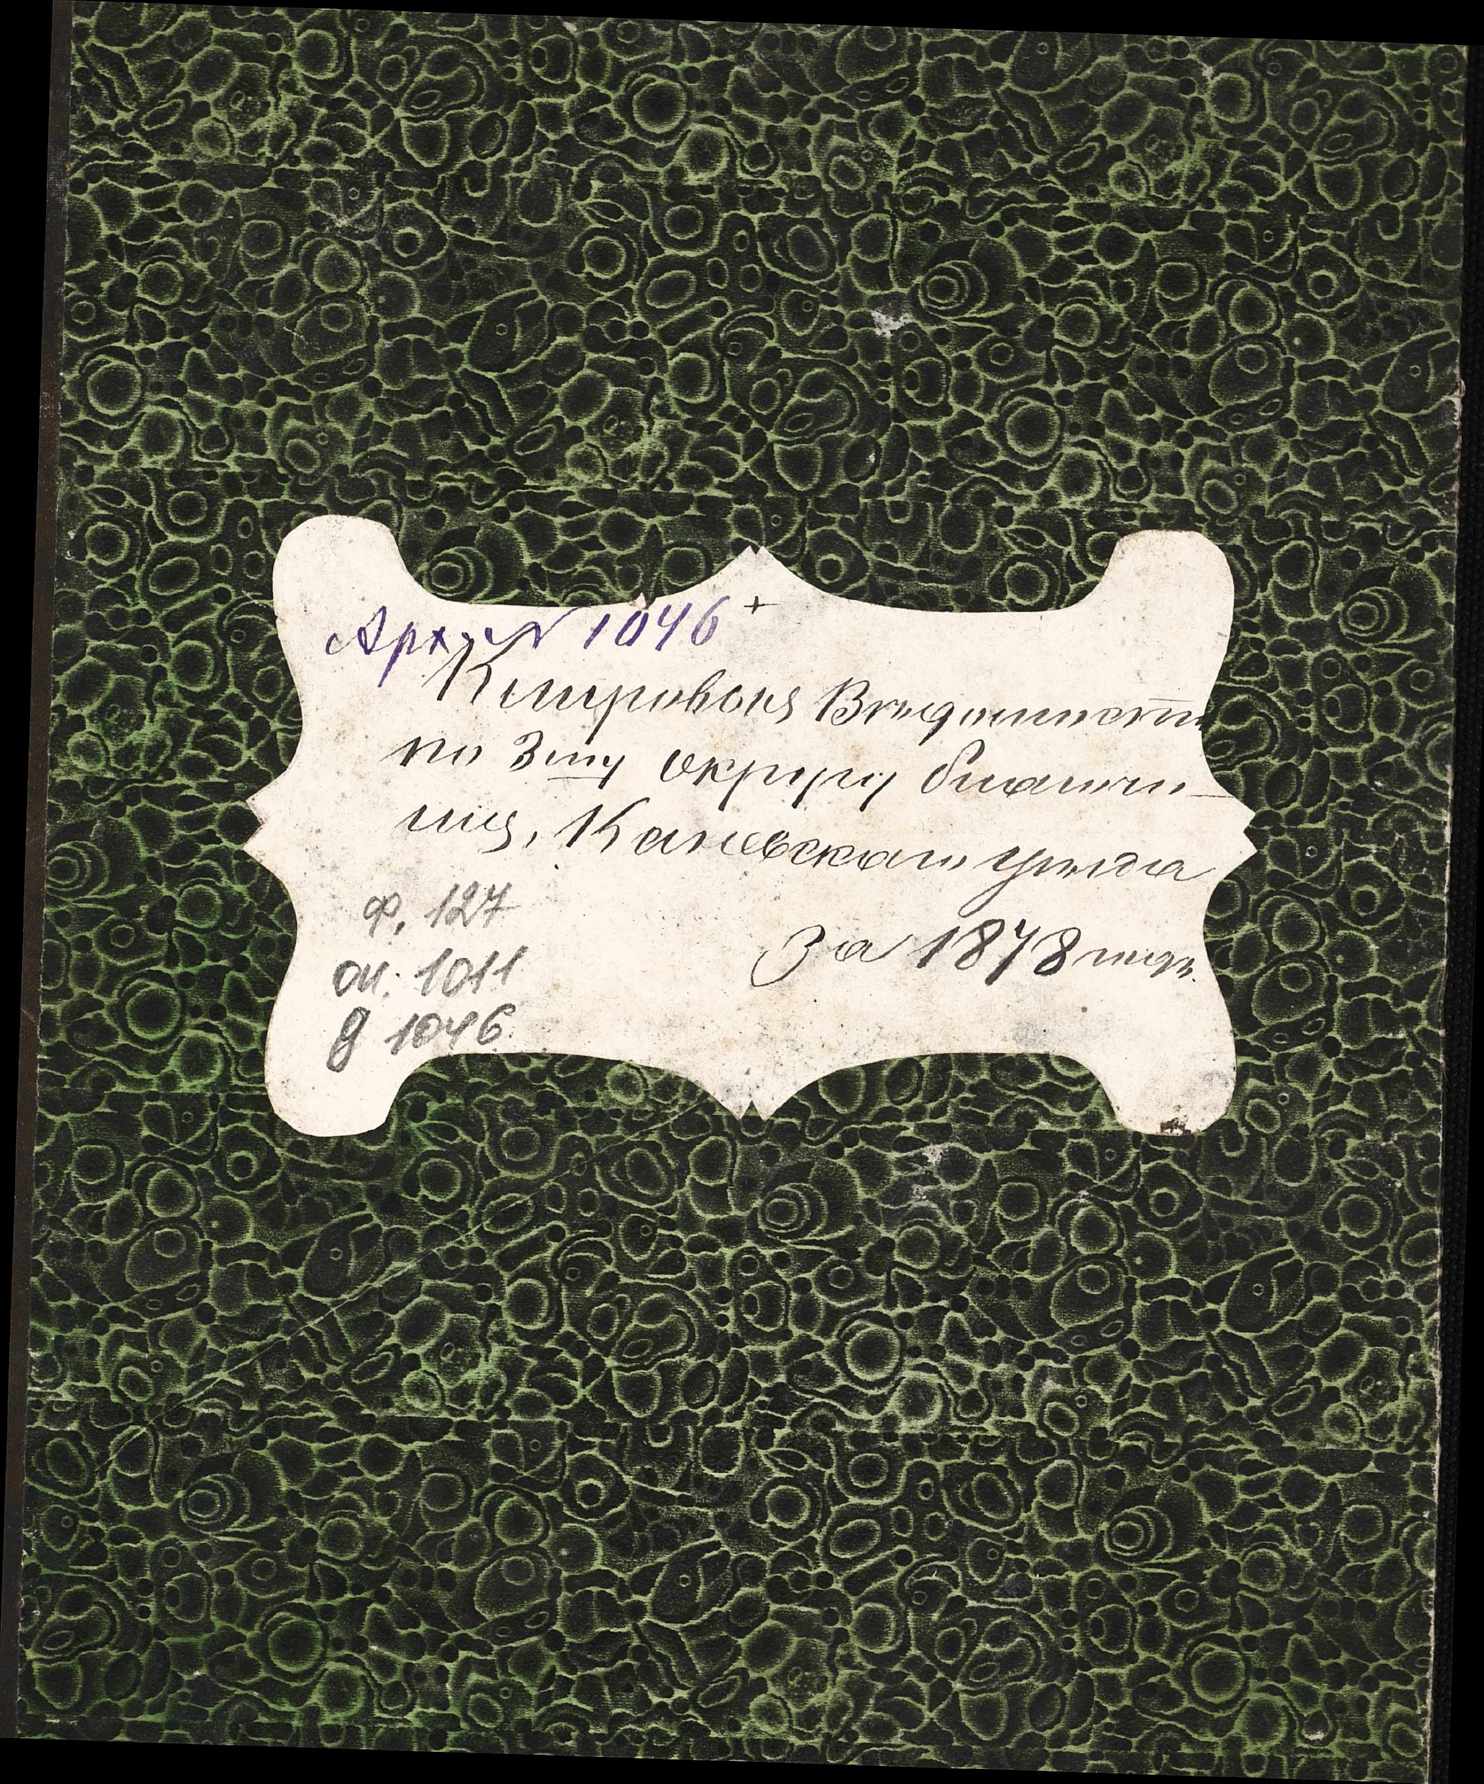 Арх. № 1046
Клировыя Вѣдомости
по 3му округу благочи-
нія, Каневскаго уѣзда
за 1878 годъ.
ф. 127
оп. 1011
д 1046